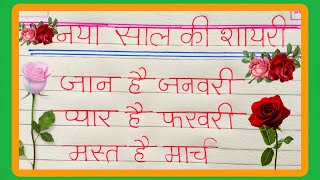 नया साल की शायरी
जान है जनवरी
प्यार है फरवरी
मस्त है मार्च